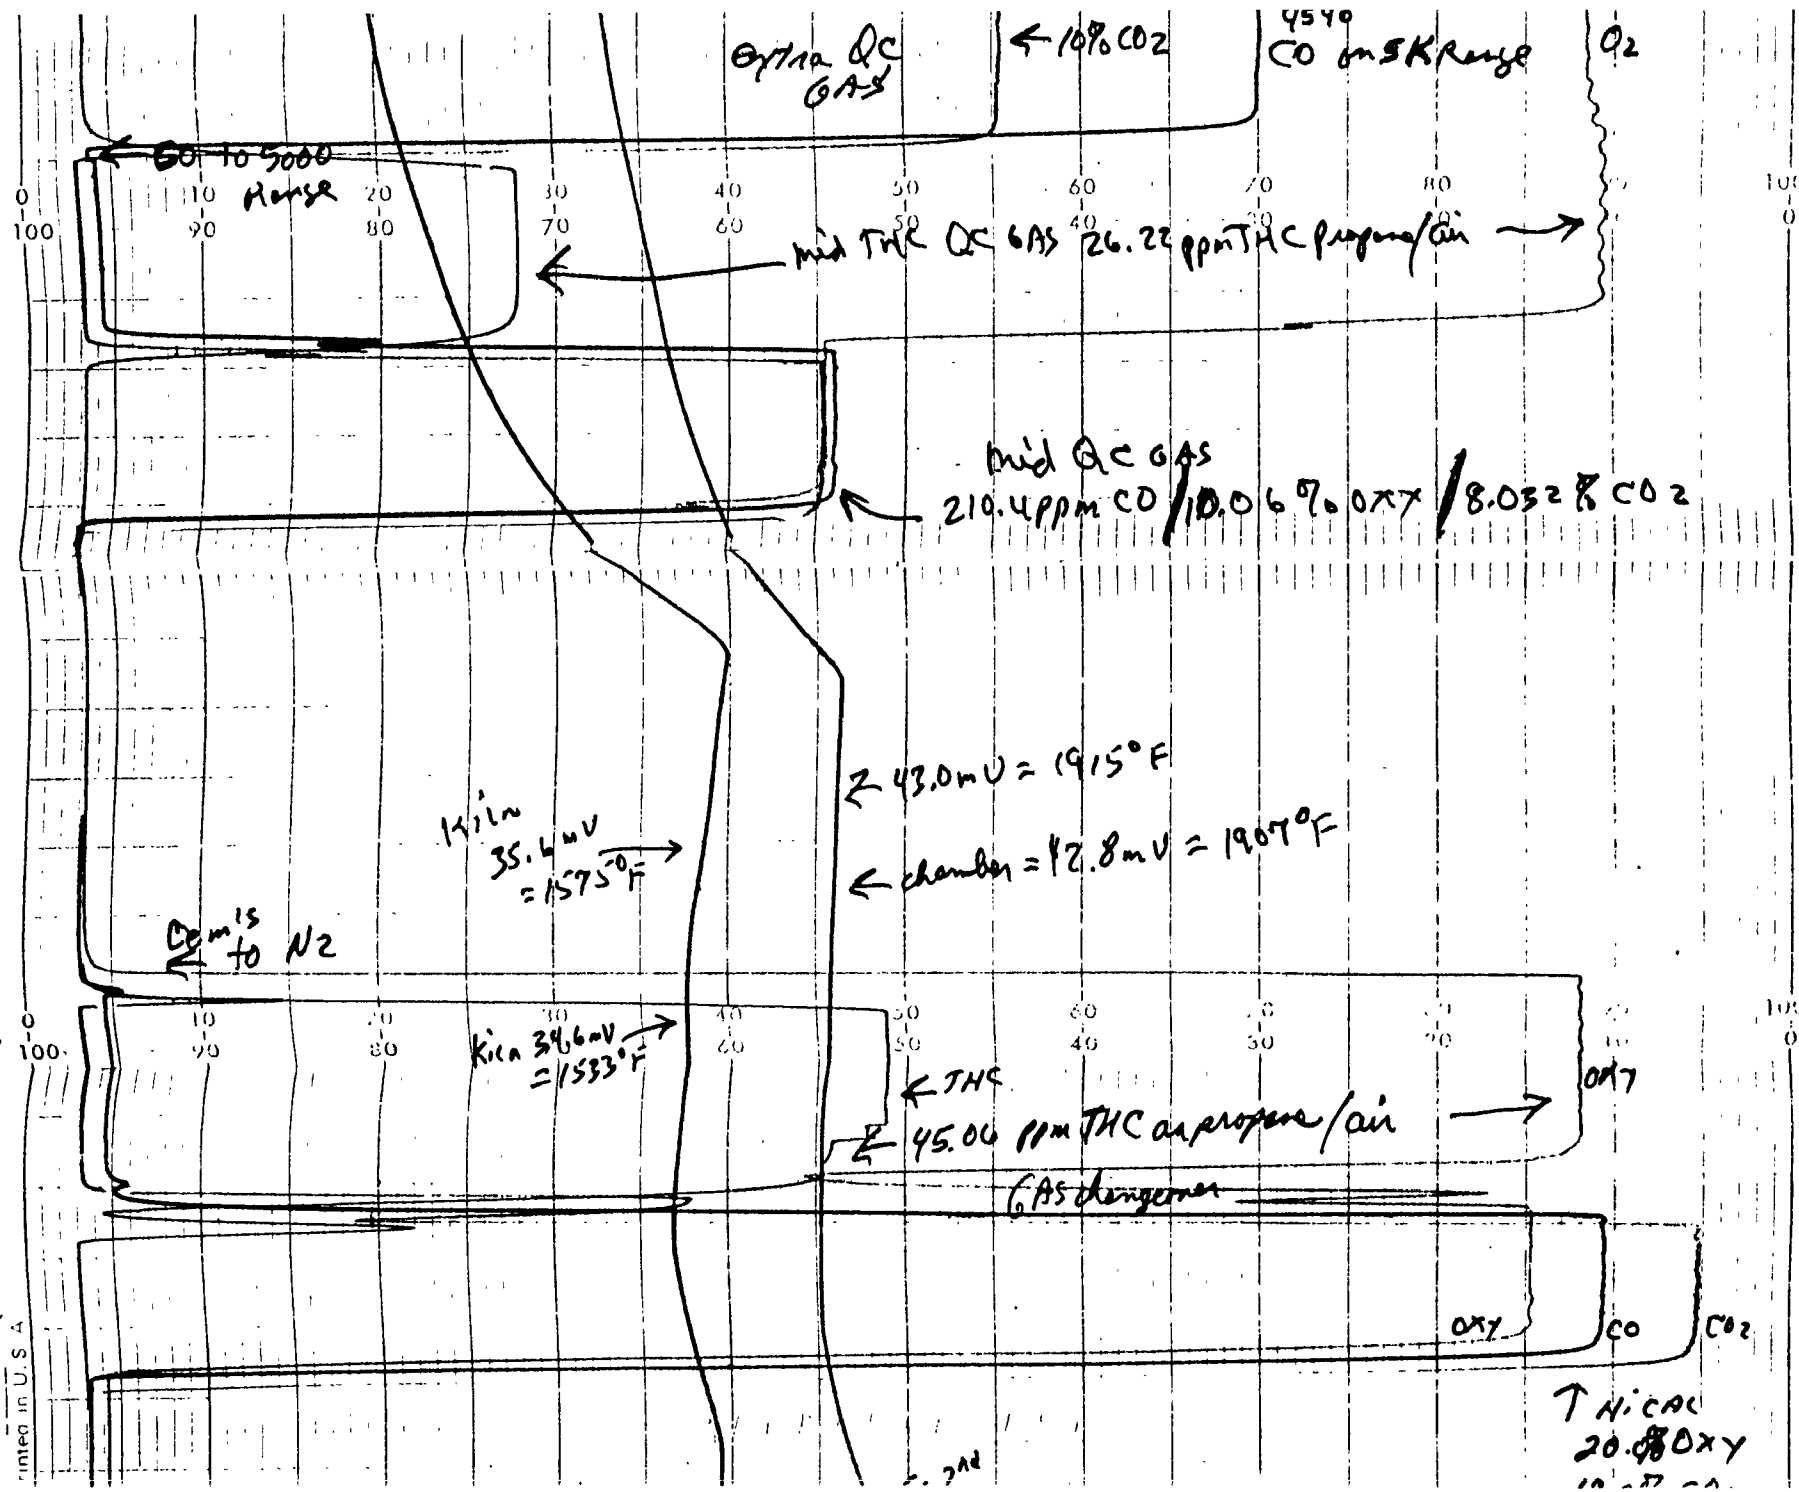 Extra QC
GAS
← 10% CO2
4540
CO on 5K Range
O2
← GO to 5000
Range
0 10 20 30 40 50 60 70 80 100
100 90 80 70 60 50 40 30 0
mid THC QC GAS 26.22 ppm THC propane/air →
mid QC GAS
210.4 ppm CO / 10.06 % OXY / 8.032 % CO2
← 43.0 mV = 1915°F
Kiln
35.6 mV →
= 1575°F
← chamber = 42.8 mV = 1907°F
Cem's
← to N2
0 10 20 30 40 50 60 70 80 90 100
100 90 80 70 60 50 40 30 20 0
Kiln 34.6 mV →
= 1533°F
← THC
OXY
← 45.06 ppm THC as propane/air →
GAS changeover
OXY
CO
CO2
↑ HiCAL
20.0% OXY
2nd
Printed in U. S. A.